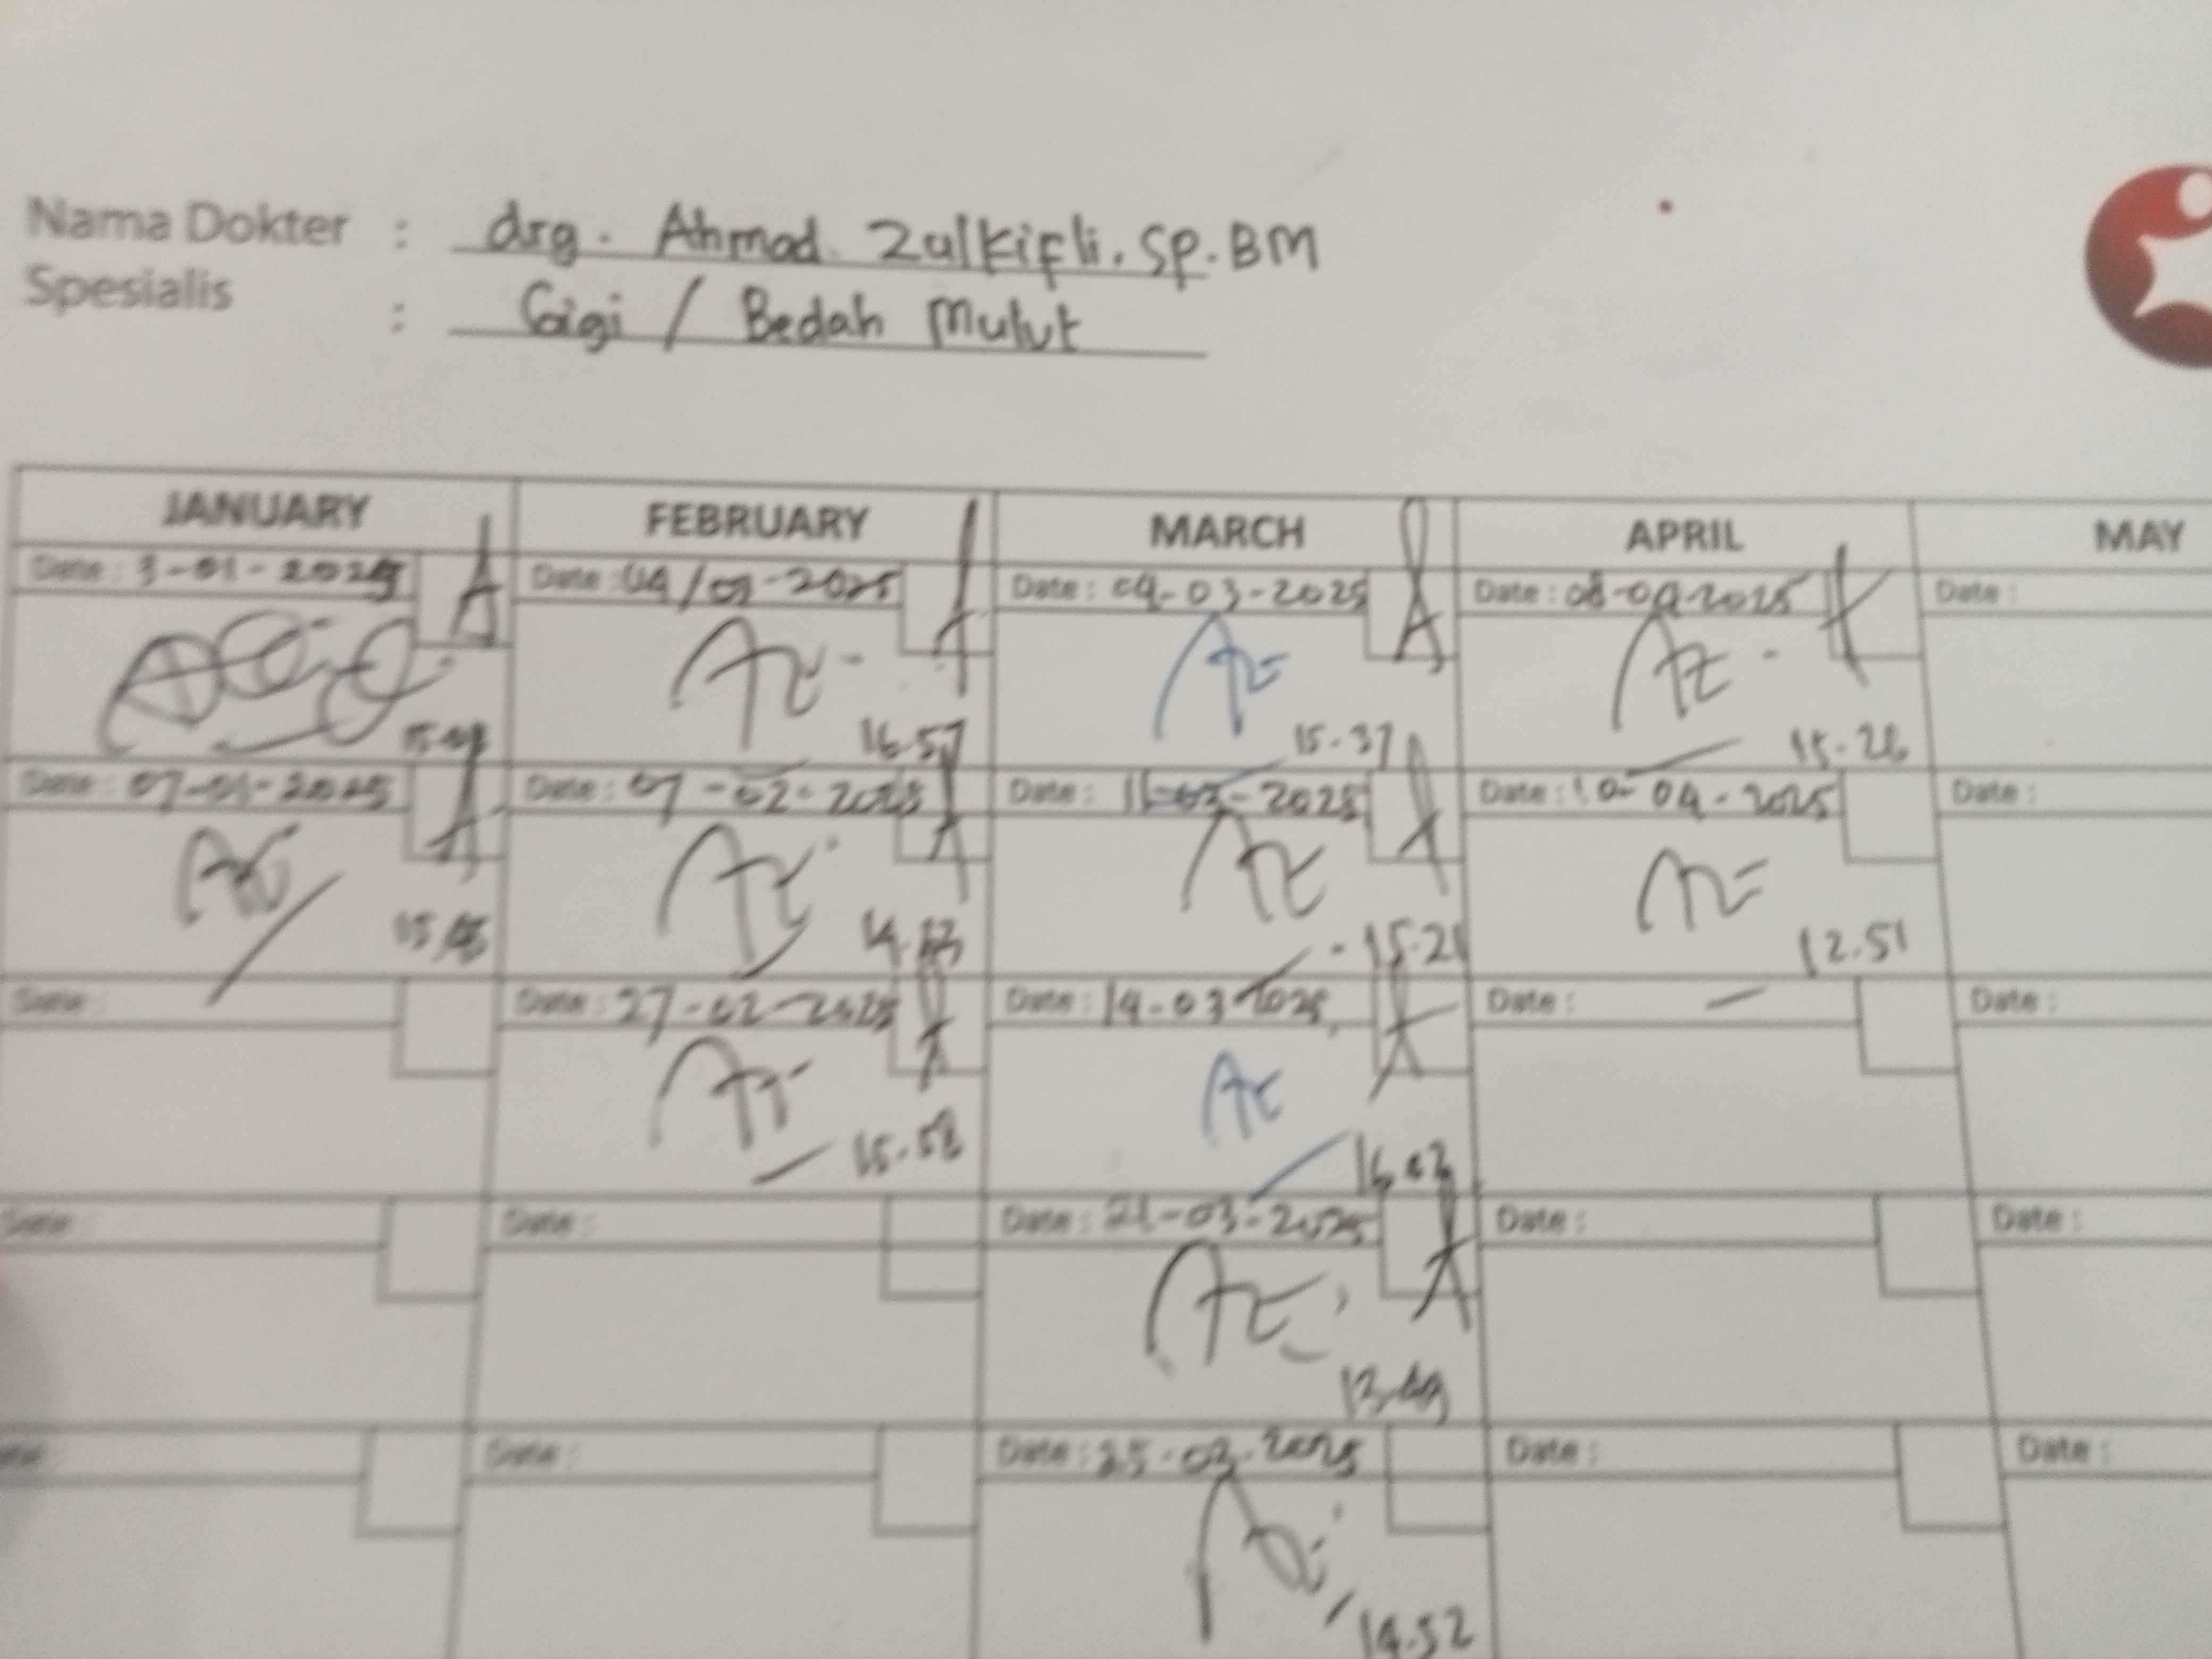 Nama Dokter : drg. Ahmad Zulkifli. Sp. BM
Spesialis : Gigi / Bedah Mulut
JANUARY FEBRUARY MARCH APRIL MAY
Date : 3-01-2025 Date : 04/02-2025 Date : 04-03-2025 Date : 08-04-2025 Date :
16.57 15.37 15.26
Date : 07-01-2025 Date : 07-02-2025 Date : 11-03-2025 Date : 10-04-2025 Date :
15.21 12.51
Date : Date : 27-02-2025 Date : 14-03-2025 Date : Date :
15.58 16.03
Date : Date : Date : 21-03-2025 Date : Date :
13.49
Date : Date : Date : 25-03-2025 Date : Date :
14.52